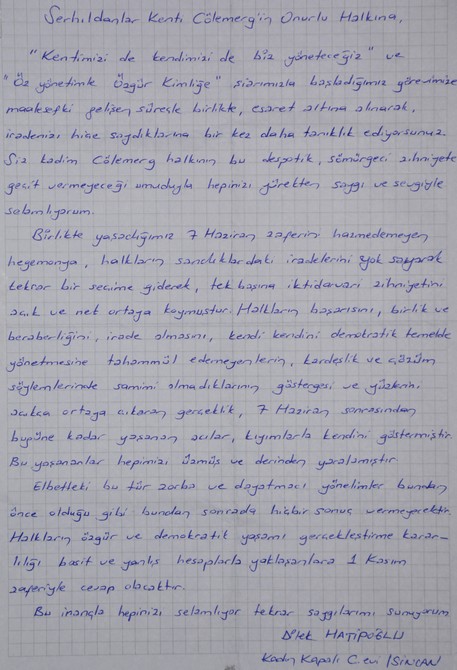 Serhıldanlar Kenti Cölemerg'in Onurlu Halkına,
"Kentimizi de kendimizi de biz yöneteceğiz" ve
"Öz yönetimle Özgür Kimliğe" şiarımızla başladığımız görevimize
maalesefki gelişen süreçle birlikte, esaret altına alınarak,
iradenizi hiçe saydıklarına bir kez daha tanıklık ediyorsunuz.
Siz kadim Cölemerg halkının bu despotik, sömürgeci zihniyete
geçit vermeyeceği umuduyla hepinizi yürekten saygı ve sevgiyle
selamlıyorum.
Birlikte yaşadığımız 7 Haziran zaferini hazmedemeyen
hegemonya, halkların sandıklardaki iradelerini yok sayarak
tekrar bir seçime giderek, tek başına iktidarvari zihniyetini
açık ve net ortaya koymuştur. Halkların başarısını, birlik ve
beraberliğini, irade olmasını, kendi kendini demokratik temelde
yönetmesine tahammül edemeyenlerin, kardeşlik ve çözüm
söylemlerinde samimi olmadıklarının göstergesi ve yüzlerini
açıkça ortaya çıkaran gerçeklik, 7 Haziran sonrasından
bugüne kadar yaşanan acılar, kıyımlarla kendini göstermiştir.
Bu yaşananlar hepimizi üzmüş ve derinden yaralamıştır.
Elbetteki bu tür zorba ve dayatmacı yönelimler bundan
önce olduğu gibi bundan sonrada hiçbir sonuç vermeyecektir.
Halkların özgür ve demokratik yaşamı gerçekleştirme karar-
lılığı basit ve yanlış hesaplarla yaklaşanlara 1 Kasım
zaferiyle cevap olacaktır.
Bu inançla hepinizi selamlıyor tekrar saygılarımı sunuyorum
Dilek HATİPOĞLU
Kadın Kapalı C.evi / SİNCAN